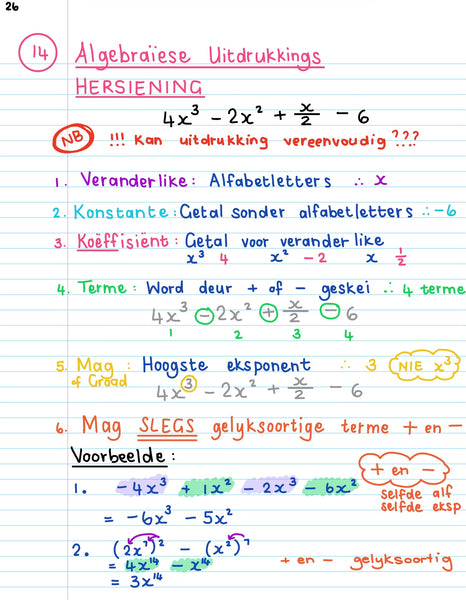 26
14 Algebraïese Uitdrukkings
HERSIENING
4x³ - 2x² + x/2 - 6
NB !!! Kan uitdrukking vereenvoudig ???
1. Veranderlike: Alfabetletters ∴ x
2. Konstante: Getal sonder alfabetletters ∴ -6
3. Koëffisiënt: Getal voor veranderlike
x³ 4 x² -2 x 1/2
4. Terme: Word deur + of - geskei ∴ 4 terme
4x³ - 2x² + x/2 - 6
1 2 3 4
5. Mag : Hoogste eksponent ∴ 3 NIE x³
of Graad
4x³ - 2x² + x/2 - 6
6. Mag SLEGS gelyksoortige terme + en -
Voorbeelde :
+ en -
1. -4x³ + 1x² - 2x³ - 6x²
selfde alf
selfde eksp
= -6x³ - 5x²
2. (2x⁷)² - (x²)⁷
= 4x¹⁴ - x¹⁴
+ en - gelyksoortig
= 3x¹⁴